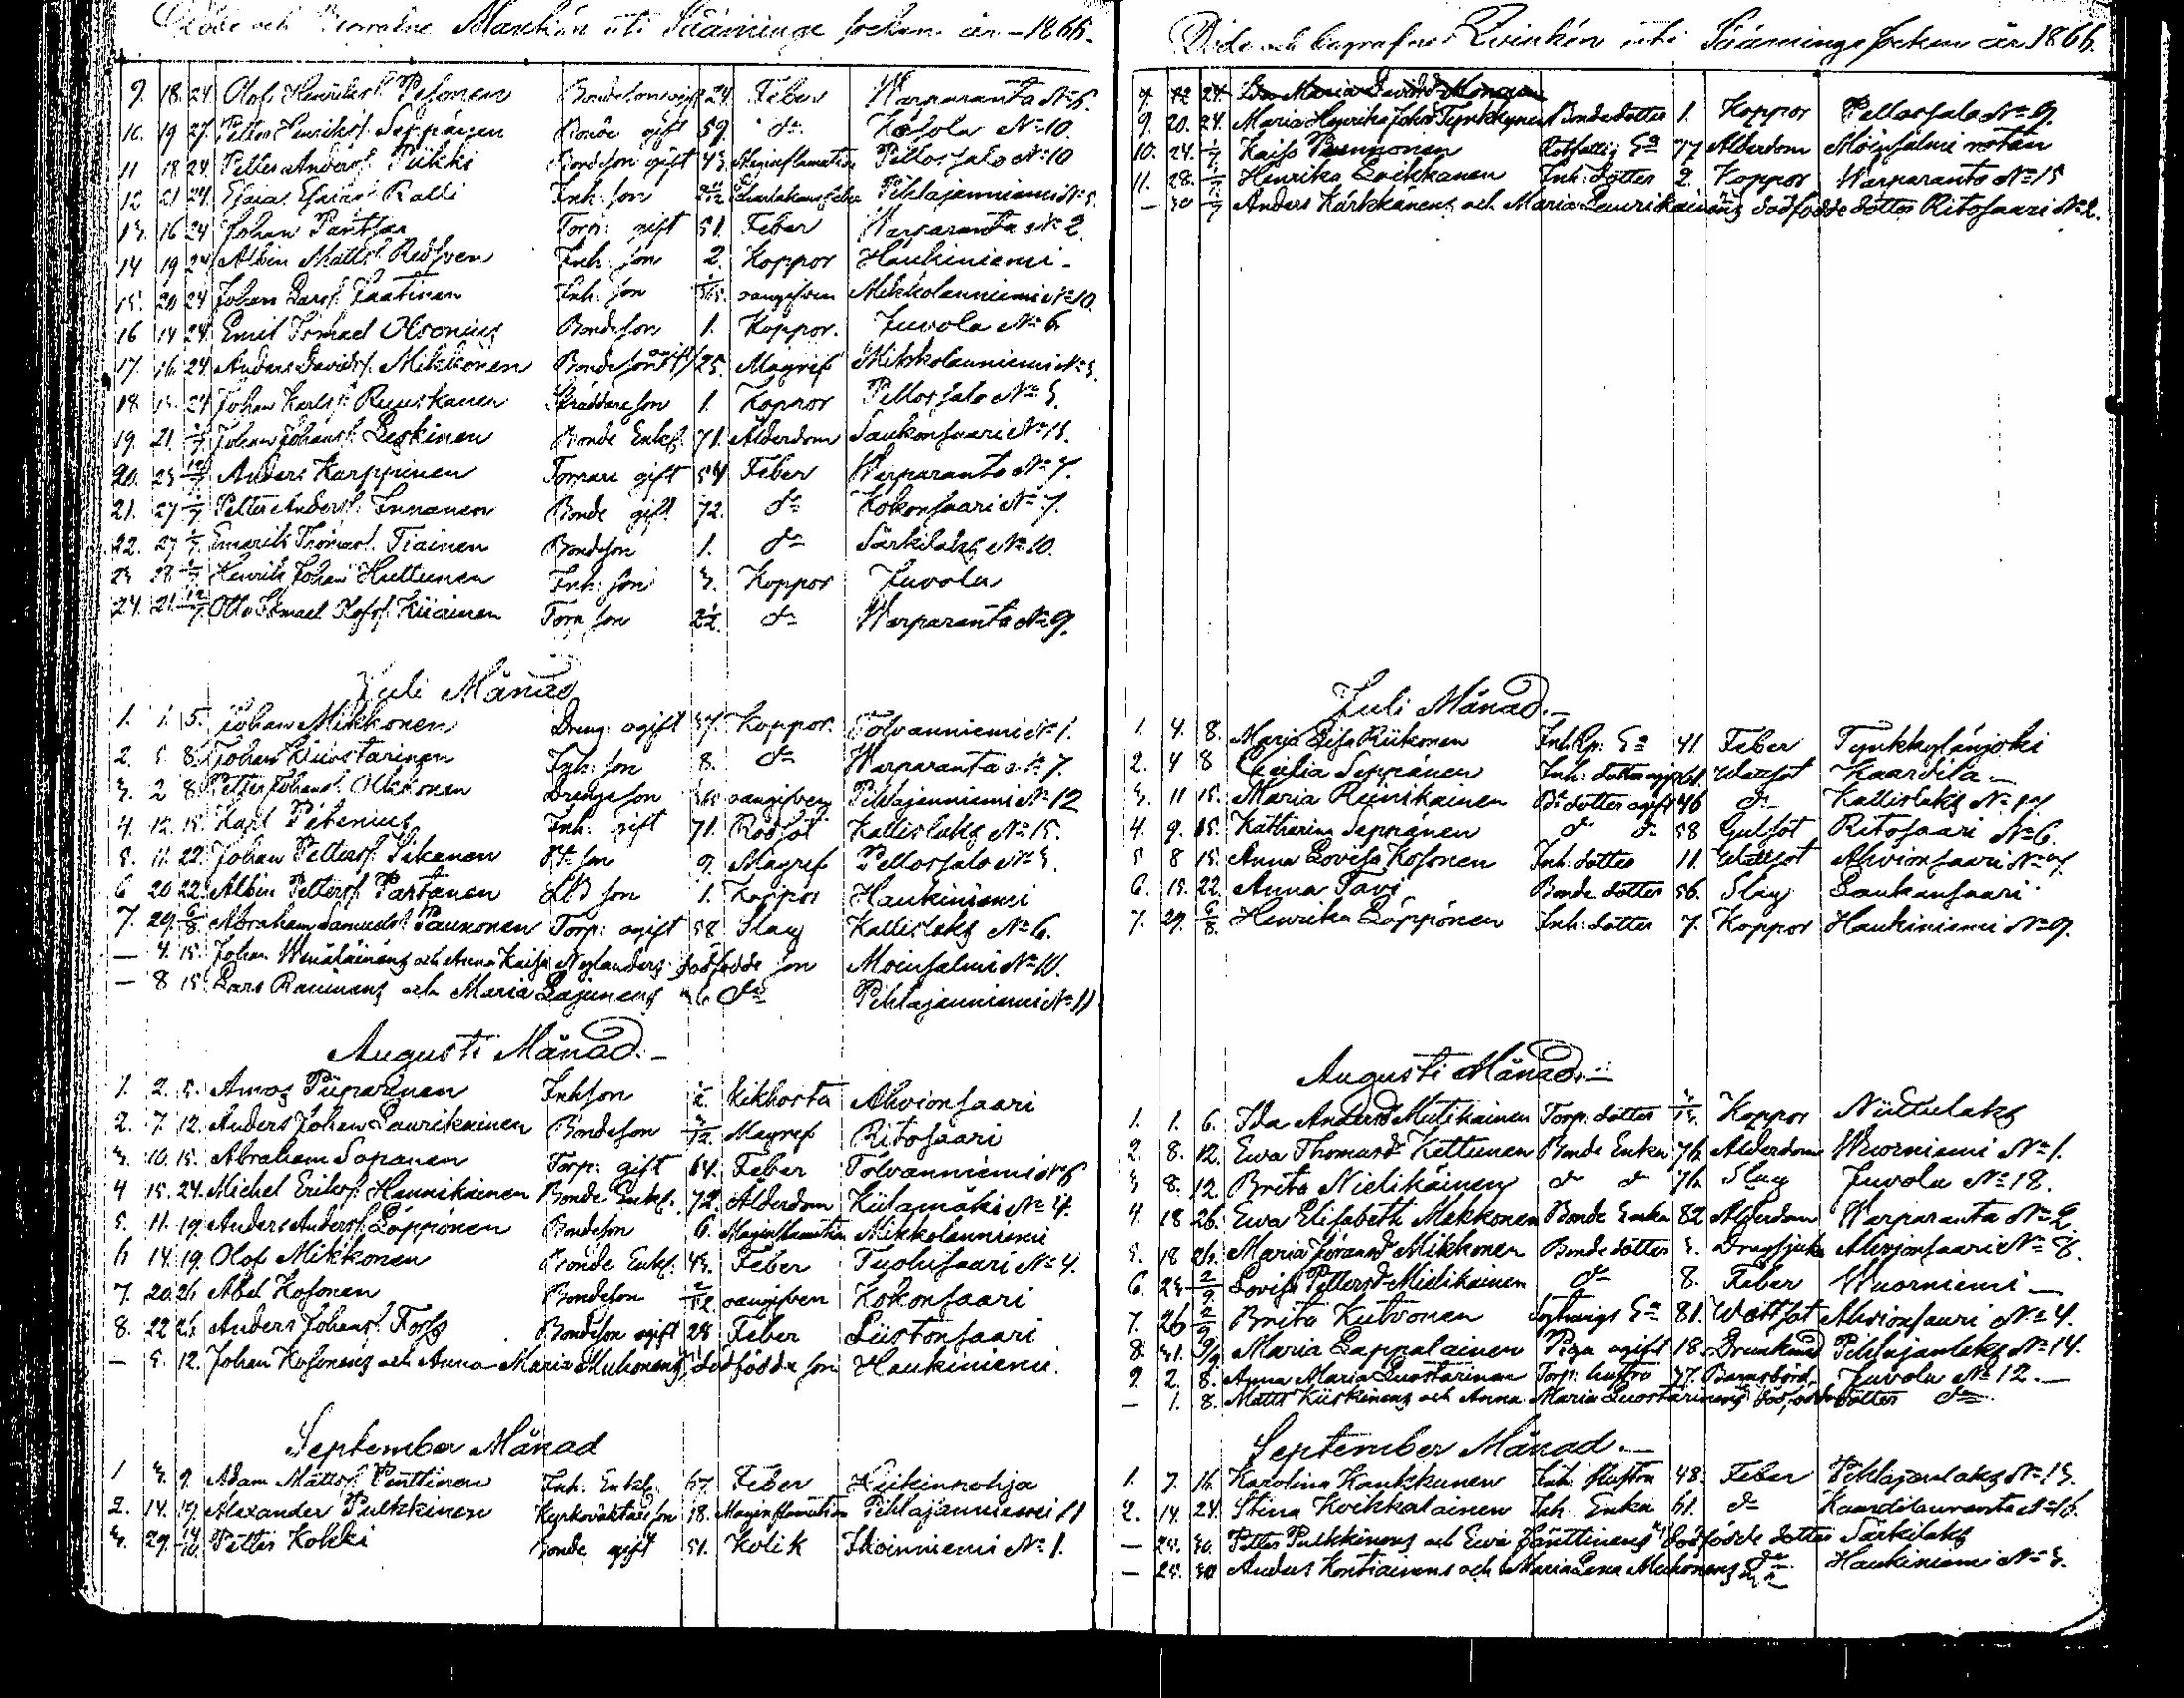 Döde och Begrafne Mankön uti Sääminge socken år 1866.
9. 18. 24. Olof Henriks. Pesonen Bondeson 24. Feber Warparanta No 6.
10. 19 27. Petter Henriks. Seppänen Bonde gift 59. do Kosola No 10.
11 18 24. Petter Anders. Piikki Bondeson gift 43. Maginflamation Pellossalo No 10
12 21 24. Esaias Esaias. Ralli Inh: son Scharlakansfeber Pihlajanniemi No 5.
13. 16 24 Johan Parttja Torp: gift 51. Feber Warparanta No 2.
14 19 24 Albin Matts. Redsven Inh: son 2. Koppor Haukiniemi -
15. 20 24 Johan Lars. Laatinen Inh: son oangifven Mikkolanniemi No 10.
16 14 24. Emil Ismael Olsonius Bondeson 1. Koppor. Juvola No 6.
17. 16. 24. Anders Davids. Mikkonen Bondeson ogift 25. Magref Mikkolanniemi No 5.
18 15. 24 Johan Karls. Ruuskanen Skräddareson 1. Koppor Pellossalo No 5.
19. 21. 1/7. Johan Johans. Leskinen Bonde Enkl. 71. Ålderdom Saukonsaari No 15.
20. 25 Anders Karppinen Torpare gift 54 Feber Warparanta No 7.
21. 27 1/7. Petter Anders. Innanen Bonde gift 72. do Kokonsaari No 7.
22. 27 1/7. Henrik Thomas. Tiainen Bondeson 1. do Särkilaks No 10.
23 28 1/7 Henrik Johan Huttunen Inh: son 3. Koppor Juvola
24. 21. Otto Ismael Olofs. Kiiäinen Torp son 2 1/2. do Warparanta No 9.
Juli Månad
1. 1. 5. Johan Mikkonen Dräng ogift 37. Koppor. Tolvanniemi No 1.
2. 5. 8. Johan Luostarinen Inh: son 8. do Warparanta No 7.
3. 2 8. Petter Johans. Olkkonen Drängeson oangifven Pihlajanniemi No 12
4. 12. 15. Karl Pihenius Inh: gift 71. Rödsot Kallislaks No 15.
5. 11. 22. Johan Petters. Sikanen Bde son 9. Magref Pellossalo No 5.
6 20 22. Albin Petters. Partanen Lbd son 1. Koppor Haukiniemi
7. 29. 5/8. Abraham Samuels. Paunonen Torp: ogift 58 Slag Kallislaks No 6.
— 4. 15. Johan Wenäläinens och Anna Kaisa Nylanders dödfödde son Moinsalmi No 10.
— 8 15. Lars Raunians och Maria Lajunens do Pihlajanniemi No 11
Augusti Månad. -
1. 2. 5. Amos Piiparinen Inhson 1/2 Kikhosta Ahvionsaari
2. 7. 12. Anders Johan Laurikainen Bondeson 3/12 Magref Ritosaari
3. 10. 15. Abraham Sopanen Torp: gift 64. Feber Tolvanniemi No 6
4 15. 24. Michel Eriks. Hannikainen Bonde Enkl. 72. Ålderdom Kiilamäki No 4.
5. 11. 19. Anders Anders. Löppönen Bondeson 6. Maginflamation Mikkolanniemi
6 14. 19. Olof Mikkonen Bonde Enkl. 43. Feber Tuohisaari No 4.
7. 20. 26 Abel Kosonen Bondeson 2/12 oangifven Kokonsaari
8. 22 26 Anders Johans. Forss Bondeson ogift 28 Feber Liistonsaari
— 5. 12. Johan Kosonens och Anna Maria Muhonens dödfödde son Haukiniemi.
September Månad
1 3. 9. Adam Matts. Penttinen Inh: Enkl. 67. Feber Heikinpohja
2. 14. 19. Alexander Pulkkinen Kyrkoväktareson 18. Maginflamation Pihlajanniemi 11
3. 29. 14/10. Petter Kokki Bonde gift 51. Kolik Moinniemi No 1.
Döde och begrafne Qvinkön uti Sääminge Socken år 1866.
9. 20. 24. Maria Henrika Johsd Tynkkynen Bonde dotter 1. Koppor Pellossalo No 9.
10. 24. 1/7. Kaisa Paunonen Rotfattig Ea 77 Ålderdom Moinsalmi rotan
11. 28. 1/7. Henrika Loikkanen Inh: dotter 2. Koppor Warparanta No 15
— 30 1/7 Anders Kärkkänens och Maria Laurikainens dödfödde dotter Ritosaari No 2.
Juli Månad. -
1. 4. 8. Maria Lisa Riikonen Inh. Ea 41. Feber Tynkkylänjoki
2. 4 8 Cecilia Seppänen Inh: dotter ogift 61 Wattsot Kaartila -
3. 11 15. Maria Reinikainen Bde dotter ogift 46 do Kallislaks No 17
4. 9. 15. Katharina Seppänen do do 58 Gulsot Ritosaari No 6.
5 8 15. Anna Lovisa Kosonen Inh: dotter 11. Wattsot Ahvionsaari No 7.
6. 15. 22. Anna Tavi Bonde dotter 56. Slag Laukansaari
7. 29. 5/8. Henrika Löppönen Inh: dotter 7. Koppor Haukiniemi No 9.
Augusti Månad. -
1. 1. 6. Ida Andersd Mielikainen Torp. dotter Koppor Niittulaks
2. 8. 12. Ewa Thomasd Kettunen Bonde Enka 76. Ålderdom Wuorniemi No 1.
3 8. 12. Brita Mielikäinen do do 76. Slag Juvola No 18.
4. 18 26. Ewa Elisabeth Mikkonen Bonde Enka 82 Ålderdom Warparanta No 2.
5. 18 26. Maria Göransd Mikkonen Bonde dotter 5. Dragsjuka Ahvionsaari No 8.
6. 23 2/9. Lovisa Pettersd Mielikainen do 8. Feber Wuorniemi —
7. 26 2/9 Brita Kutvonen Sytnings Ea 81. Wattsot Ahvionsaari No 4.
8. 31. 9/9 Maria Lappalainen Piga ogift 18. Drunknad Pihlajanlaks No 14.
9. 2. 8. Anna Maria Luostarinen Torp: hustru 37. Barnsbörd Juvola No 12. —
— 1. 8. Matts Kiiskinens och Anna Maria Luostarinens dödfödde dotter do
September Månad. —
1. 7. 16. Karolina Kaukkunen Inh: hustru 48. Feber Pihlajanlaks No 13.
2. 14. 24. Stina Kokkalainen Inh: Enka 61. do Kaartilanranta No 16.
— 25. 30. Petter Pulkkinens och Ewa Pänttinens dödfödde dotter Särkilaks
— 25. 30 Anders Kontiainens och Maria Lena Muhonens do Haukiniemi No 3.